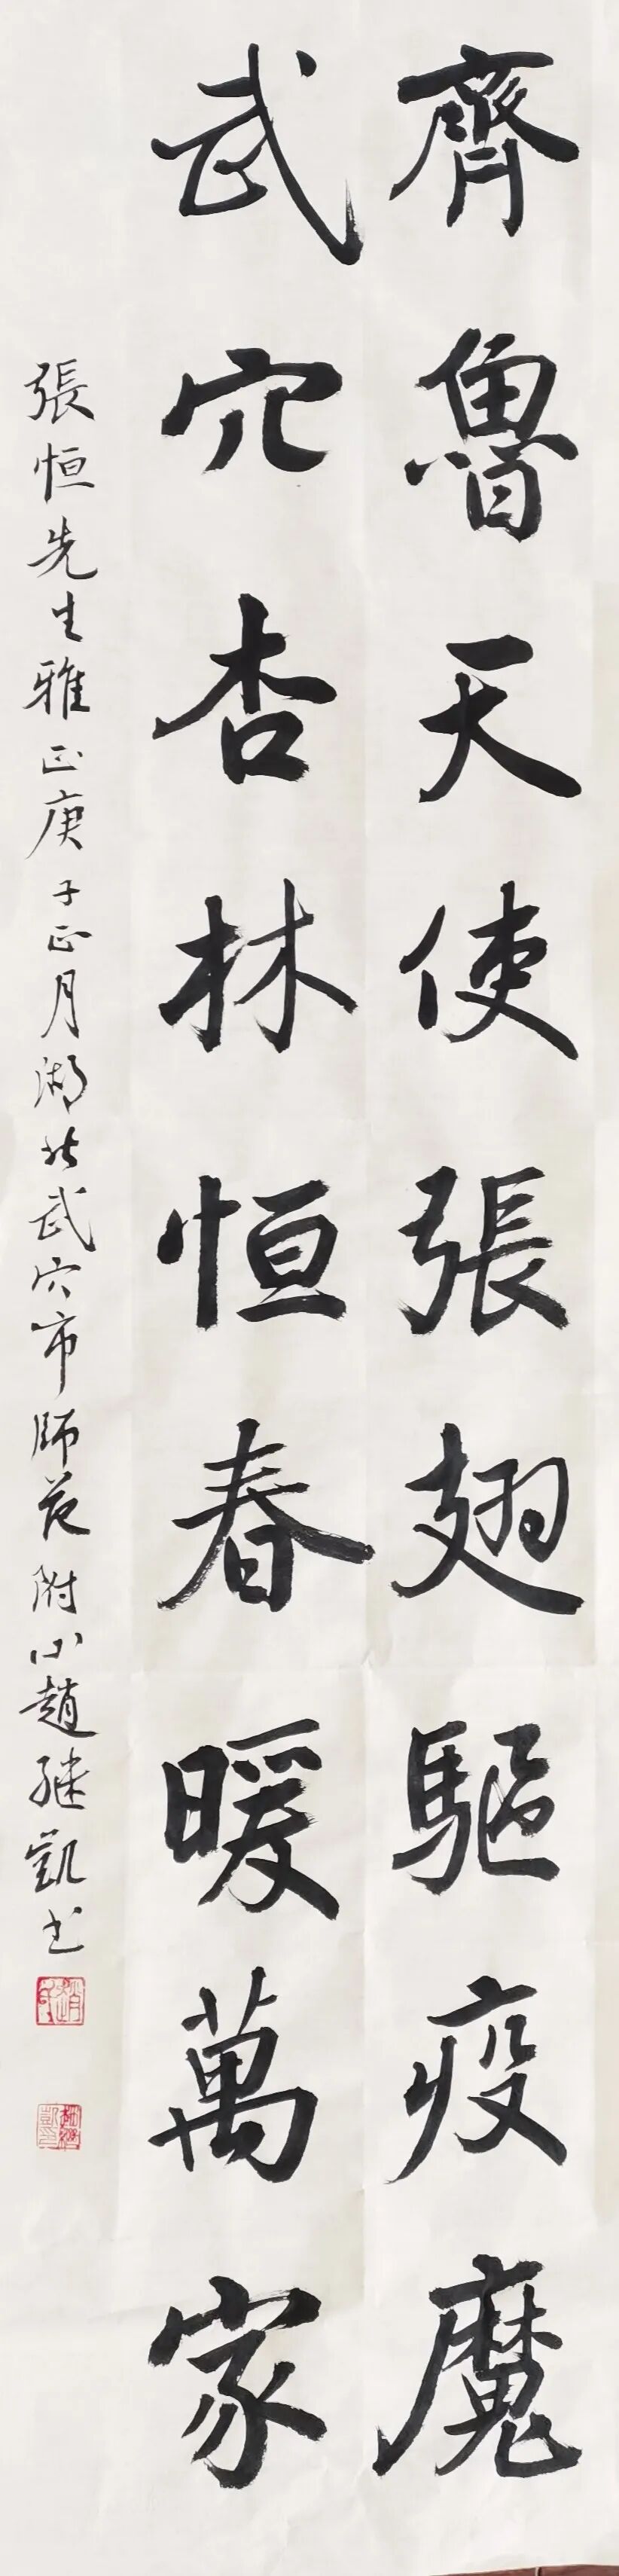 齊魯天使張翅驅疫魔
武穴杏林恒春暖萬家
張恒先生雅正庚子正月湖北武穴市師范附小趙继凱书